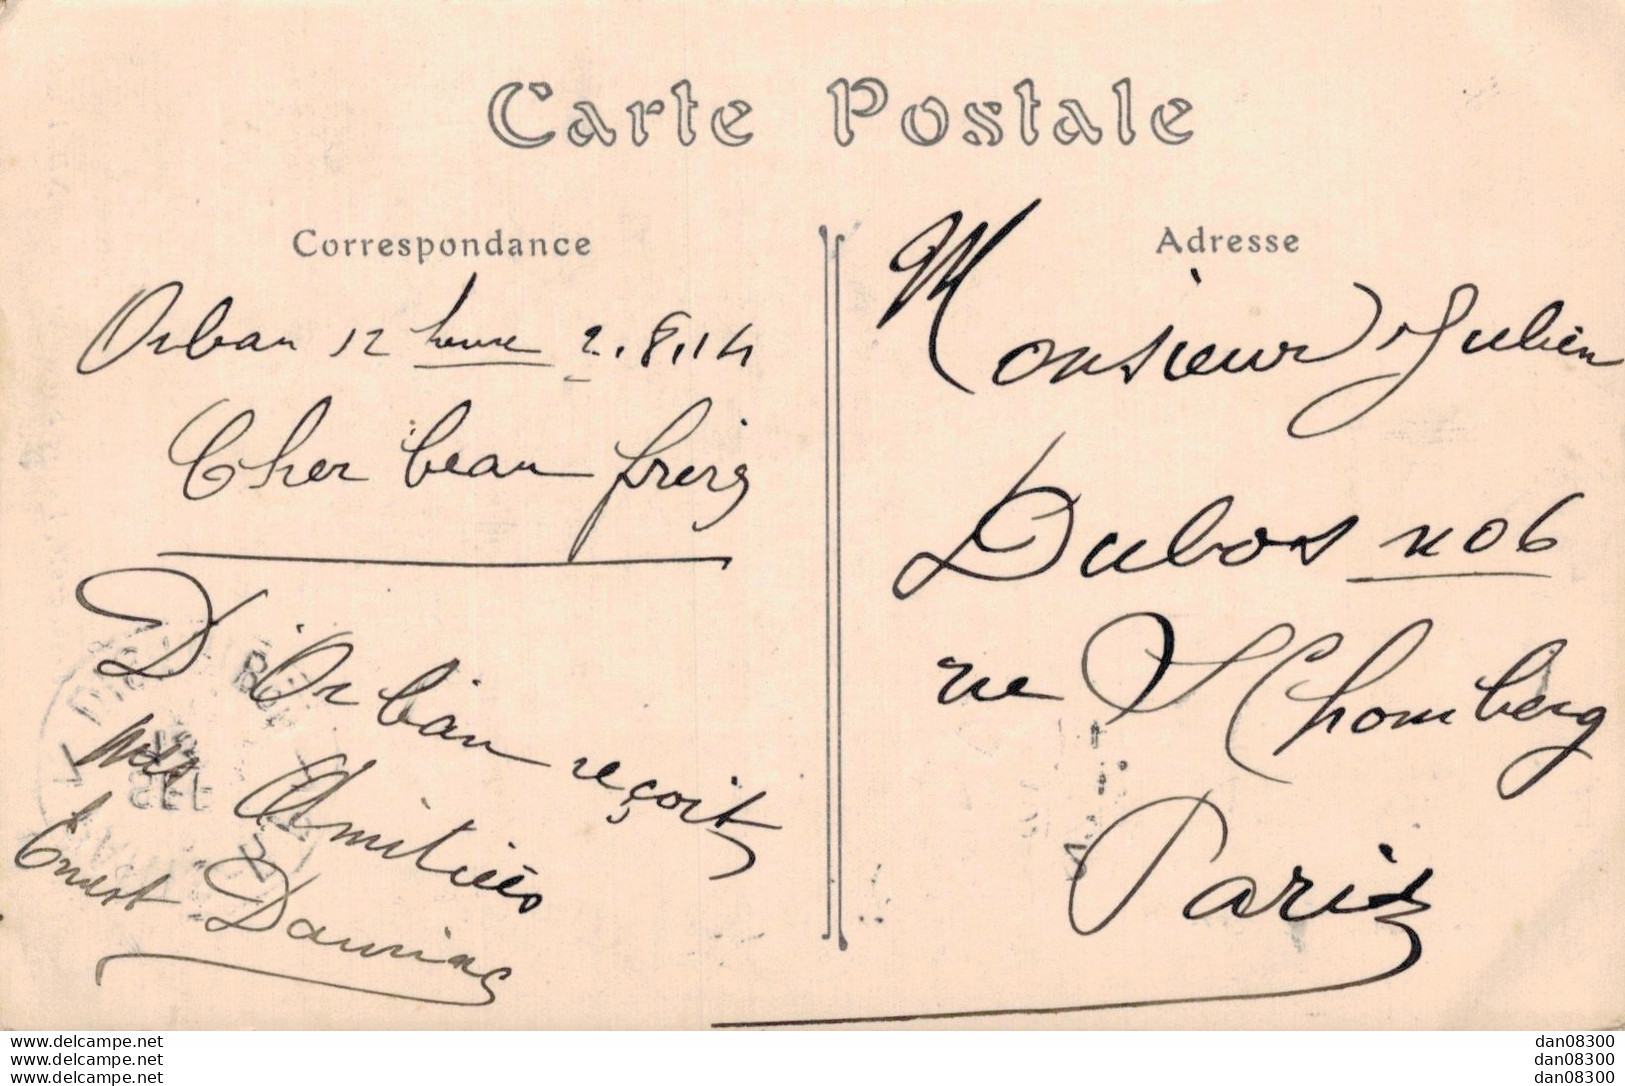 Carte Postale
Correspondance
Orban 12 heure 2.8.14
Cher beau frere
D'Orban reçoit
mes Amitiées
Ernest
Adresse
Monsieur Julien
Dubos no 6
rue Schomberg
Paris
www.delcampe.net
www.delcampe.net
www.delcampe.net
dan08300
dan08300
dan08300